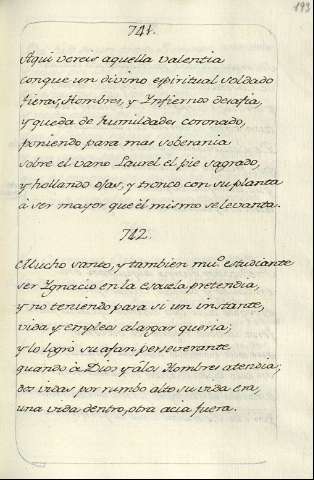 193
741.
Aqui vereis aquella valentia
conque un divino espiritual soldado
fieras, Hombres, y Infiernos desafia,
y queda de humildades coronado,
poniendo para mas soberania
sobre el vano Laurel el pie sagrado,
y hollando ojas, y tronco con su planta
à ser mayor que èl mismo se levanta.
742.
Mucho santo, y tambien muº. estudiante
ser Ygnacio en la Escuela pretendia,
y no teniendo para si un instante,
vida y empleos alargar queria;
y lo logró su afan perseverante
quando à Dios y álos Hombres atendia;
dos vidas por rumbo alto su vida era,
una vida dentro, otra acia fuera.